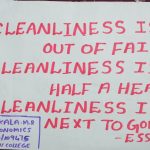 CLEANLINESS IS
OUT OF FAI
CLEANLINESS IS
HALF A HEA
CLEANLINESS I
NEXT TO GOD
- ESS
KALA.M.R
ONOMICS
COLLEGE